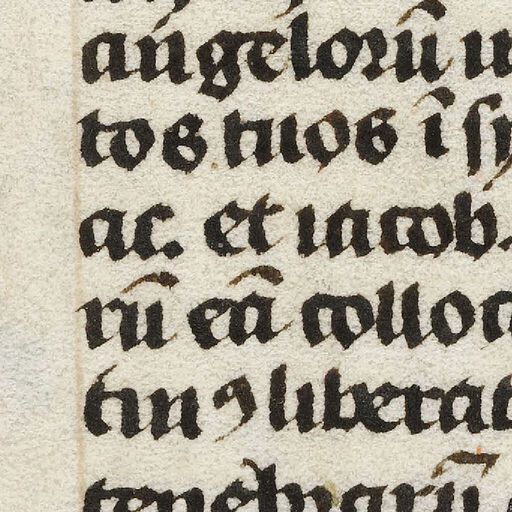 angelorū
tos tuos ī
ac. et iacob.
rū etiā colloc
tinꝯ liberat
tenebrarū